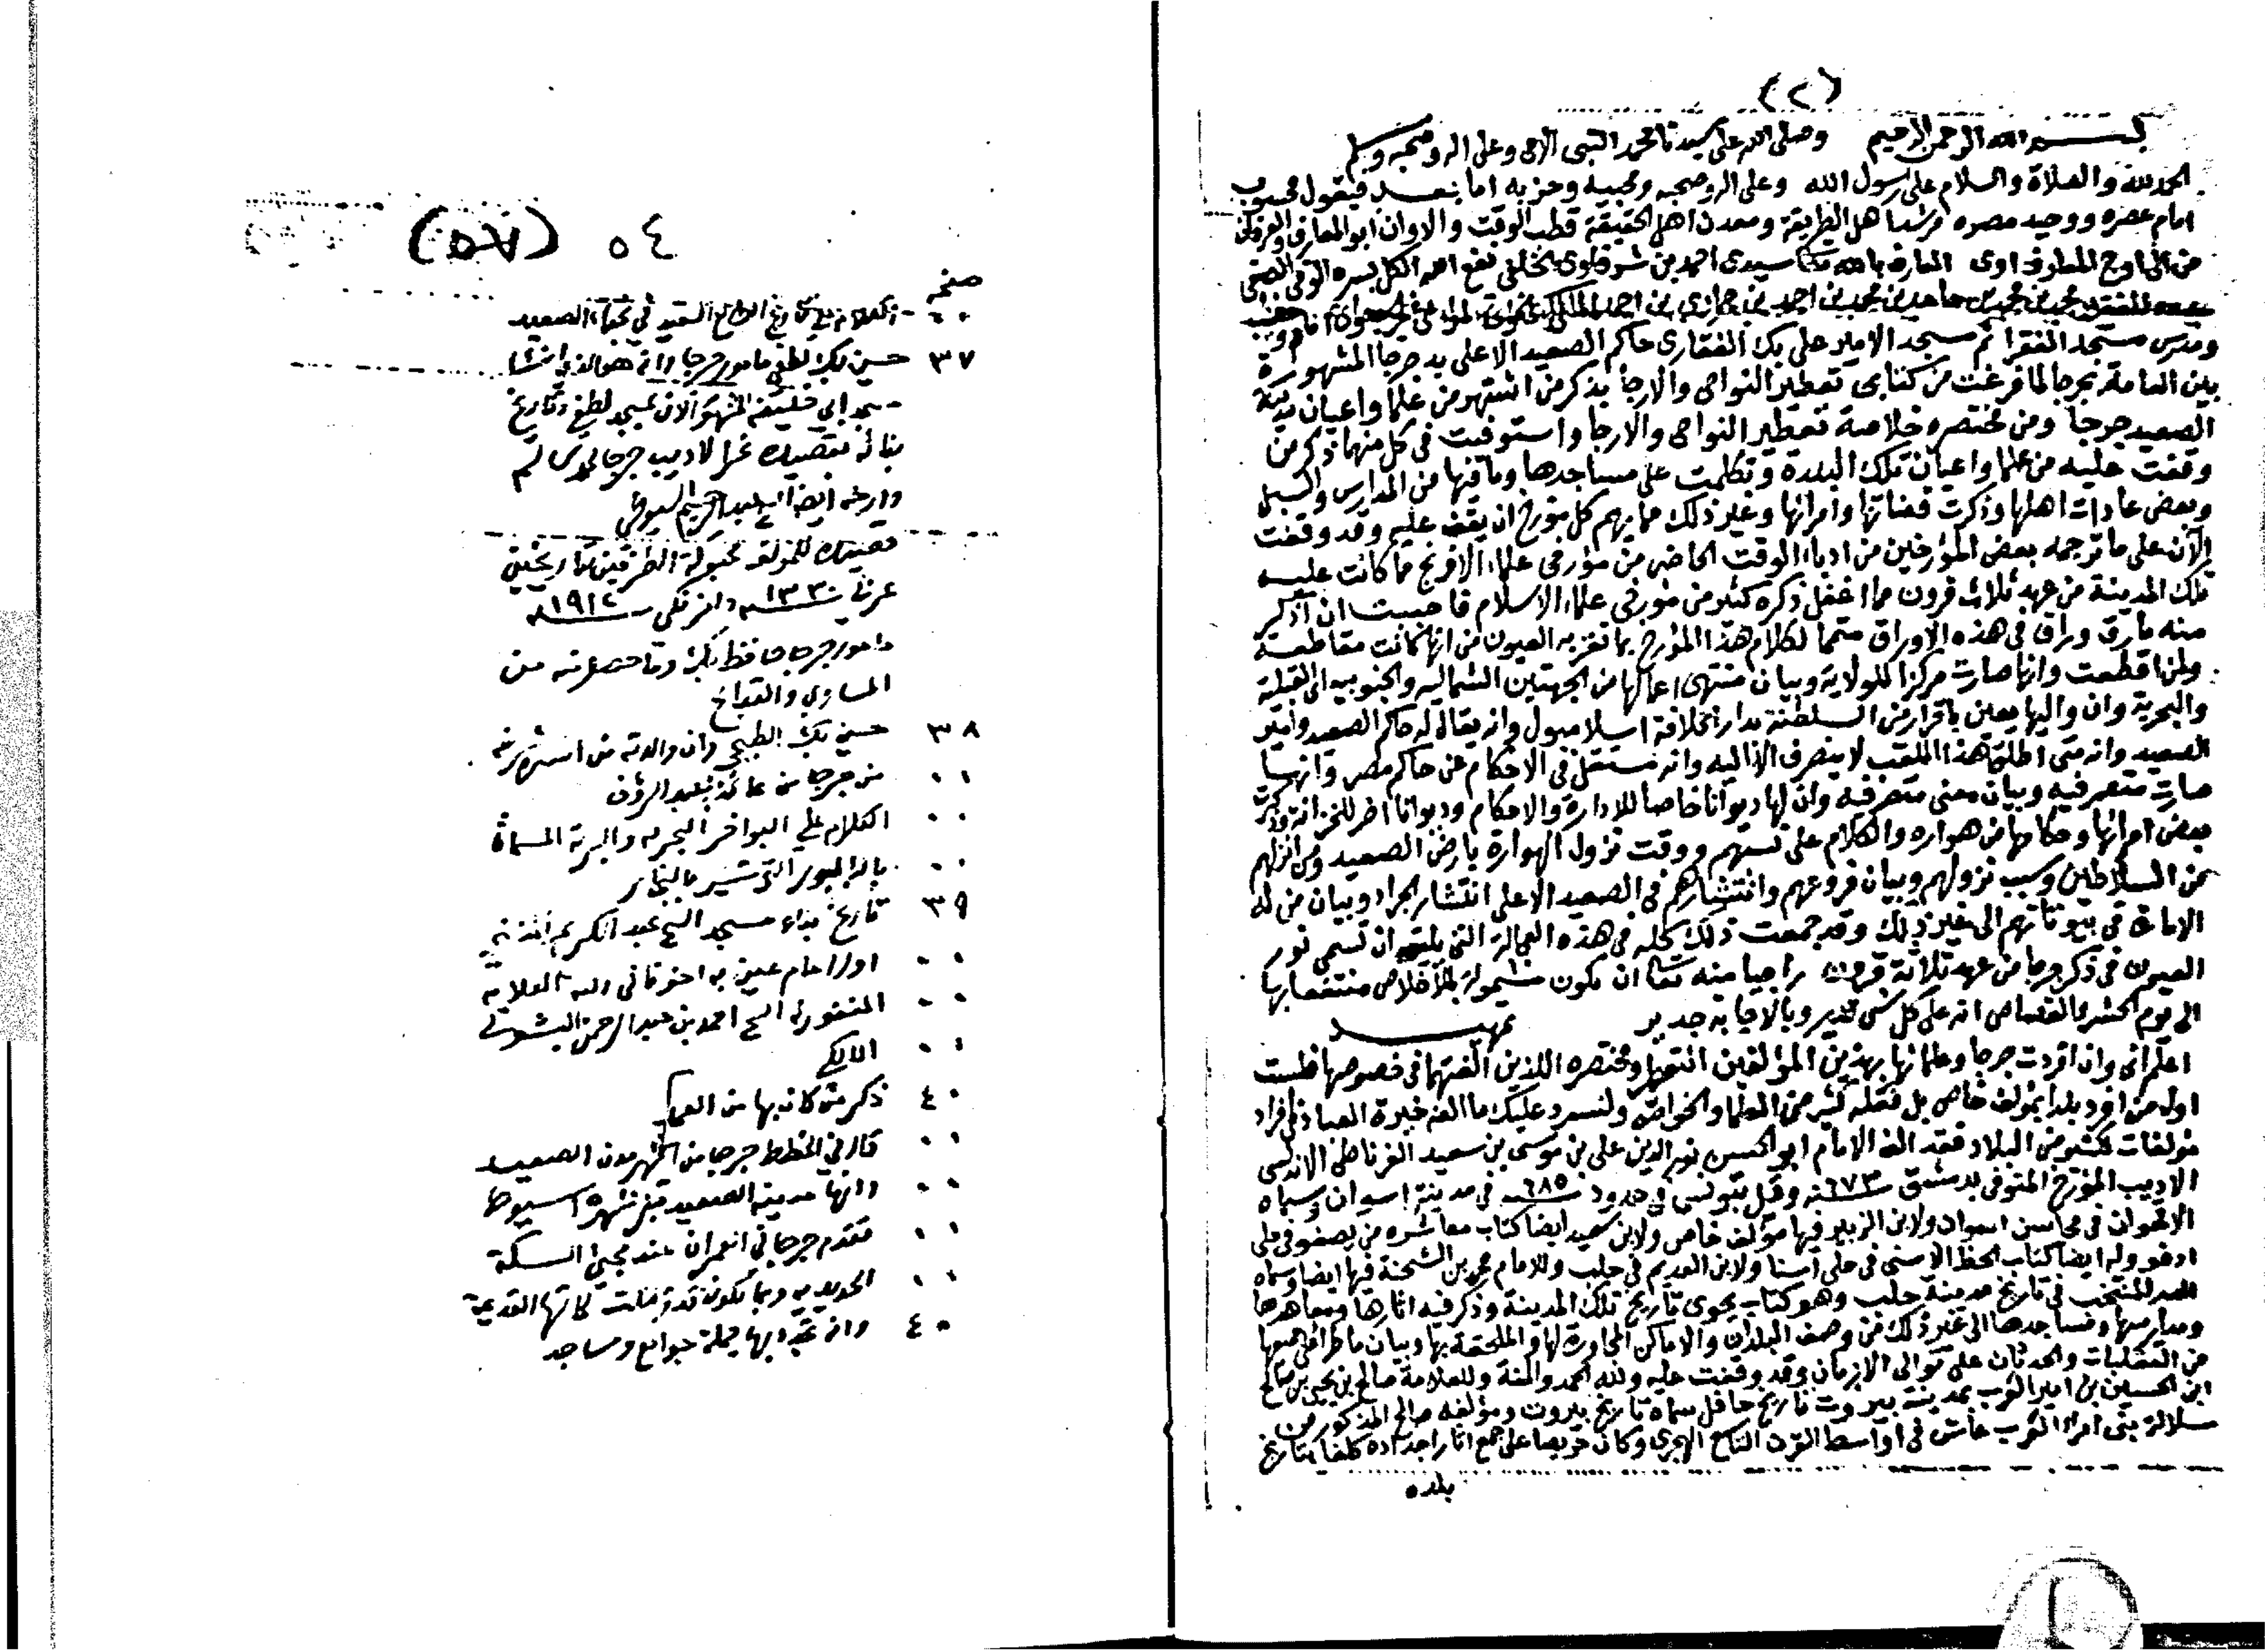 (٢)
بسم الله الرحمن الرحيم وصلى الله على سيدنا محمد النبى الامى وعلى اله وصحبه وسلم
الحمد لله والصلاة والسلام على رسول الله وعلى اله وصحبه ومحبيه وحزبه اما بعد فيقول محسوب
امام عصره ووحيد مصره مرشد اهل الطريقة ومعدن اهل الحقيقة قطب الوقت والاوان ابو المعارف والعرفان
العارف بالله تعالى سيدى احمد بن شرقاوى الخلفى نفع الله الكل بسره
محمد بن محمد بن حامد بن محمد بن احمد بن حجازى بن احمد المالكى
ومدرس مسجد الفقرا ثم مسجد الامير على بك الفقارى حاكم الصعيد الاعلى بدجرجا المشهورة
بين العامة بجرجا لما فرغت من كتابى تعطير النواحى والارجا بذكر من اشتهر من علما واعيان مدينة
الصعيد جرجا ومن مختصره خلاصة تعطير النواحى والارجا واستوفيت فى كل منهما ذكر من
وقفت عليه من علما واعيان تلك البلدة وتكلمت على مساجدها وما فيها من المدارس والسبل
وبعض عادات اهلها وذكرت قضاتها وامرائها وغير ذلك مما يهم كل مؤرخ ان يقف عليه وقد وقفت
الآن على ما ترجمه بعض المؤرخين من ادباء الوقت الحاضر من مؤرخى علماء الافرنج مما كانت عليه
تلك المدينة من عهد ثلاث قرون مما اغفل ذكره كثير من مؤرخى علماء الاسلام فاحببت ان اذكر
منه ما رق وراق فى هذه الاوراق متمما لكلام هذا المؤرخ بما تقر به العيون من انها كانت مقاطعة
ولمن اقطعت وانها صارت مركزا للولاية وبيان منتهى اعمالها من الجهتين الشمالية والجنوبية الى القبلة
والبحرية وان واليها يعين باقرار من السلطنة بدار الخلافة اسلامبول وانه يقال له حاكم الصعيد وامير
الصعيد وانه متى اطلق هذا اللقب لا ينصرف الا اليه وانه مستقل فى الاحكام عن حاكم مصر وانها
صارت متصرفيه وبيان معنى متصرفيه وان لها ديوانا خاصا للادارة والاحكام وديوانا اخر للخزانة وذكرت
بعض امرائها وحكامها من هواره والكلام على نسبهم ووقت نزول الهوارة بارض الصعيد ومن انزلهم
من السلاطين وسبب نزولهم وبيان فروعهم وانتشارهم فى الصعيد الاعلى انتشار الجراد وبيان من له
الامارة فى بيوتاتهم الى غير ذلك وقد جمعت ذلك كله فى هذه العجالة التى يليق ان تسمى نور
العيون فى ذكر جرجا من عهد ثلاثة قرون راجيا منه تعالى ان تكون مشمولة بالاخلاص منتفعا بها
الى يوم الحشر والقصاص انه على كل شئ قدير وبالاجابة جدير
تمهيد
اعلم انى وان افردت جرجا وعلمائها بهذين المؤلفين ومختصره اللذين الفتهما فى خصوصها فلست
اول من افرد بلدا بمؤلف خاص بل فعله كثير من العلما والخواص ولنسرد عليك ما الفه خيرة العباد فى افراد
مؤلفات لكثير من البلاد فقد الف الامام ابو الحسن نور الدين على بن موسى بن سعيد الغرناطى الاندلسى
الاديب المؤرخ المتوفى بدمشق ٦٧٣ سنة وقيل بتونس فى حدود ٦٨٥ سنة فى مدينة اسوان وسماه
الاقحوان فى محاسن اسوان ولابن الزبير فيها مؤلف خاص ولابن سعيد ايضا كتاب معاشره من يصفو فى حلى
ادفو وله ايضا كتاب الحظ الاسنى فى حلى اسنا ولابن العديم فى حلب وللامام محمد بن الشحنة فيها ايضا وسماه
الدر المنتخب فى تاريخ مدينة حلب وهو كتاب يحوى تاريخ تلك المدينة وذكر فيه اثارها ومعاهدها
ومدارسها ومساجدها الى غير ذلك من وصف البلدان والاماكن المجاورة لها والملحقة بها وبيان ما طرأ على جميعها
من التقلبات والحدثان على توالى الازمان وقد وقفت عليه ولله الحمد والمنة وللعلامة صالح بن يحيى بن صالح
ابن الحسين بن امير الغرب بمدينة بيروت تاريخ حافل سماه تاريخ بيروت ومؤلفه صالح المذكور من
سلالة بنى امراء الغرب عاش فى اواسط القرن التاسع الهجرى وكان حريصا على جمع اثار اجداده كلفا بتاريخ
بلده
٥٤ (٥٧)
صفحه
٣٧ حسن بك لطفى مأمور جرجا وانه هو الذى انشأ
المشهور الآن بمسجد لطفى وتاريخ
بنائه بقصيدة غرا لاديب جرجا
وارخه ايضا الشيخ عبد الرحيم السيوطى
قصيدة للمؤلف محبوكة الطرفين بتاريخين
عربى ١٣٣٠ سنه وافرنكى ١٩١٢ سنه
مامور جرجا حافظ بك وما حصل منه من
المساوى والقبائح
٣٨ حسن بك الطبجى وان والدته من اسرة
٠٠ من جرجا من عائلة عبد الرؤف
٠٠ الكلام على البواخر البحريه والبرية المسماة
٠٠ بالوابور التى تسير بالبخار
٣٩ تاريخ بناء مسجد الشيخ عبد الكريم
٠٠ اول امام عين به اخونا فى الله العلامه
٠٠ المغفور له الشيخ احمد بن عبد الرحمن
٠٠ المالكى
٤٠ ذكر من كان بها من العما
٠٠ قال فى الخطط جرجا من اشهر مدن الصعيد
٠٠ وانها مدينة الصعيد قبل شهرة اسيوط
٠٠ تقدم جرجا فى العمران عند مجئ السكة
٠٠ الحديديه وبما تكون قد نالت مكانتها القديمة
٤٠ وان بها جملة جوامع ومساجد